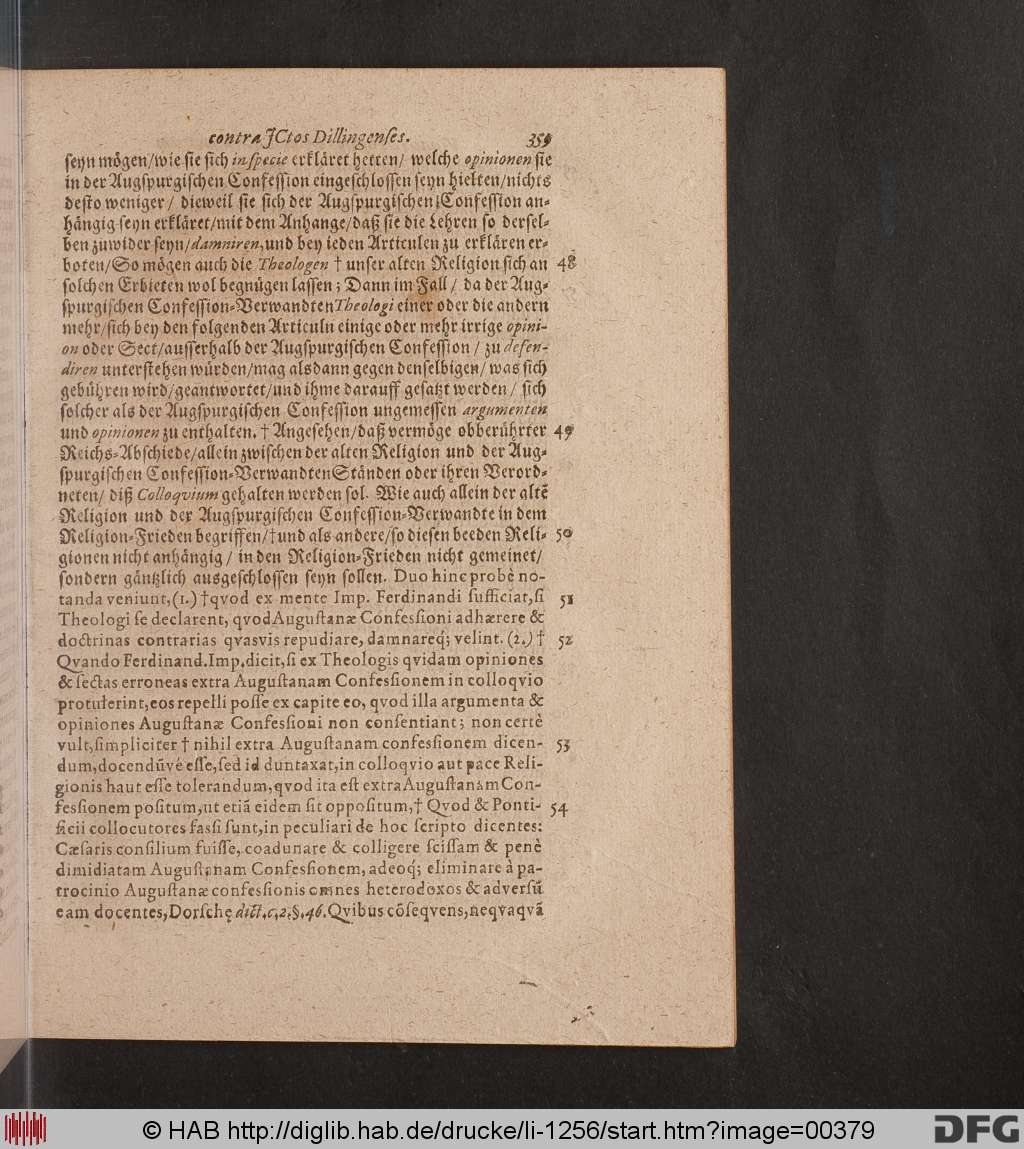 contra JCtos Dillingenses. 359
seyn mögen/wie sie sich in specie erkläret hetten/ welche opinionen sie
in der Augspurgischen Confession eingeschlossen seyn hielten/nichts
desto weniger/ dieweil sie sich der Augspurgischen Confession an-
hängig seyn erkläret/mit dem Anhange/daß sie die Lehren so dersel-
ben zuwider seyn/damniren, und bey ieden Articulen zu erklären er-
boten/So mögen auch die Theologen † unser alten Religion sich an 48
solchen Erbieten wol begnügen lassen; Dann im Fall/ da der Aug-
spurgischen Confession-Verwandten Theologi einer oder die andern
mehr/sich bey den folgenden Articuln einige oder mehr irrige opini-
on oder Sect/ausserhalb der Augspurgischen Confession/ zu defen-
diren unterstehen würden/mag alsdann gegen denselbigen/was sich
gebühren wird/geantwortet/und ihme darauff gesatzt werden/ sich
solcher als der Augspurgischen Confession ungemessen argumenten
und opinionen zu enthalten. † Angesehen/daß vermöge obberührter 49
Reichs-Abschiede/allein zwischen der alten Religion und der Aug-
spurgischen Confession-Verwandten Ständen oder ihren Verord-
neten/ diß Colloqvium gehalten werden sol. Wie auch allein der altē
Religion und der Augspurgischen Confession-Verwandte in dem
Religion-Frieden begriffen/†und als andere/so diesen beeden Reli- 50
gionen nicht anhängig/ in den Religion-Frieden nicht gemeinet/
sondern gäntzlich ausgeschlossen seyn sollen. Duo hinc probè no-
tanda veniunt, (1.) †qvod ex mente Imp. Ferdinandi sufficiat, si 51
Theologi se declarent, qvod Augustanæ Confessioni adhærere &
doctrinas contrarias qvasvis repudiare, damnareq; velint. (2.) † 52
Qvando Ferdinand. Imp. dicit, si ex Theologis qvidam opiniones
& sectas erroneas extra Augustanam Confessionem in colloqvio
protulerint, eos repelli posse ex capite eo, qvod illa argumenta &
opiniones Augustanæ Confessioni non consentiant; non certè
vult, simpliciter † nihil extra Augustanam confessionem dicen- 53
dum, docendūvé esse, sed id duntaxat, in colloqvio aut pace Reli-
gionis haut esse tolerandum, qvod ita est extra Augustanam Con-
fessionem positum, ut etiā eidem sit oppositum, † Qvod & Ponti- 54
ficii collocutores fassi sunt, in peculiari de hoc scripto dicentes:
Cæsaris consilium fuisse, coadunare & colligere scissam & penè
dimidiatam Augustanam Confessionem, adeoq; eliminare à pa-
trocinio Augustanæ confessionis omnes heterodoxos & adversū
eam docentes, Dorschę dict. c. 2. §. 46. Qvibus cōseqvens, neqvaqvā
© HAB http://diglib.hab.de/drucke/li-1256/start.htm?image=00379
DFG